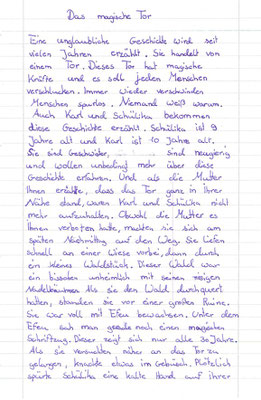 Das magische Tor
Eine unglaubliche Geschichte wird seit
vielen Jahren erzählt. Sie handelt von
einem Tor. Dieses Tor hat magische
Kräfte und es soll jeden Menschen
verschlucken. Immer wieder verschwinden
Menschen spurlos. Niemand weiß warum.
Auch Karl und Schülika bekommen
diese Geschichte erzählt. Schülika ist 9
Jahre alt und Karl ist 10 Jahre alt.
Sie sind Geschwister, sind neugierig
und wollen unbedingt mehr über diese
Geschichte erfahren. Und als die Mutter
Ihnen erzählte, dass das Tor ganz in ihrer
Nähe stand, waren Karl und Schülika nicht
mehr aufzuhalten. Obwohl die Mutter es
Ihnen verboten hatte, machten sie sich am
späten Nachmittag auf den Weg. Sie liefen
schnell an einer Wiese vorbei, dann durch
ein kleines Waldstück. Dieser Wald war
ein bisschen unheimlich mit seinen riesigen
Nadelbäumen. Als sie den Wald durchquert
hatten, standen sie vor einer großen Ruine.
Sie war voll mit Efeu bewachsen. Unter dem
Efeu sah man gerade noch einen magischen
Schriftzug. Dieser zeigt sich nur alle 30 Jahre.
Als sie versuchten näher an das Tor zu
gelangen, knackte etwas im Gebüsch. Plötzlich
spürte Schülika eine kalte Hand auf ihrer